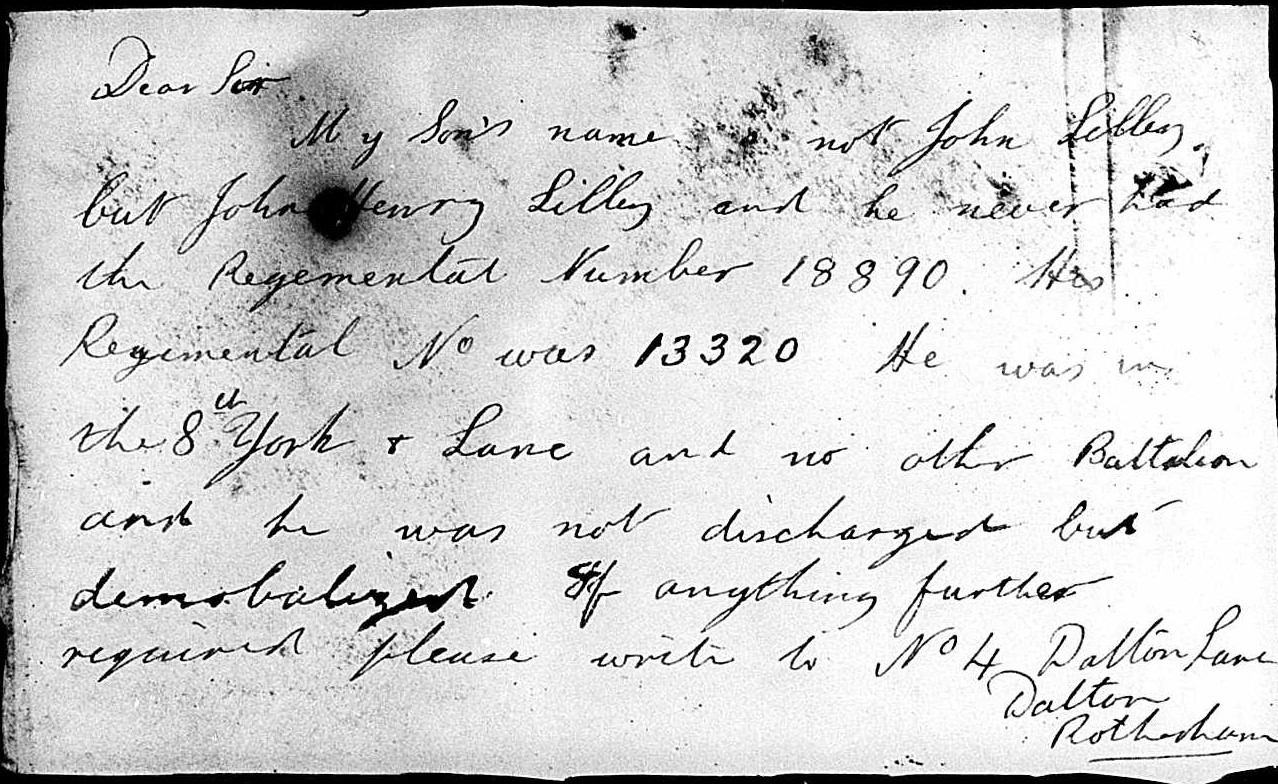 Dear Sir
My Son's name is not John Lilley.
but John Henry Lilley and he never had
the Regemental Number 18890. His
Regimental No was 13320 He was in
the 8th York & Lanc and no other Battalion
and he was not discharged but
demobalized. If anything further
required please write to No 4 Dalton Lane
Dalton
Rotherham